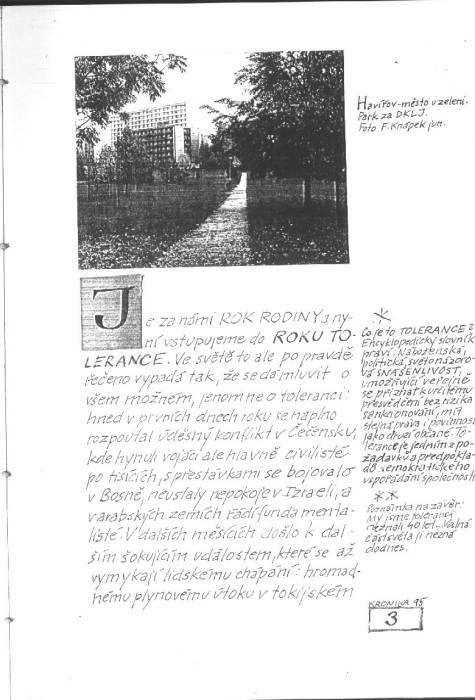 Havířov-město v zeleni.
Park za DKLJ.
Foto F. Knápek jun.
Je za námi ROK RODINY a ny-
ní vstupujeme do ROKU TO-
LERANCE. Ve světě to ale po pravdě
řečeno vypadá tak, že se dá mluvit o
všem možném, jenom ne o toleranci:
hned v prvních dnech roku se naplno
rozpoutal úděsný konflikt v Čečensku,
kde hynuli vojáci ale hlavně civilisté
po tisících, s přestávkami se bojovalo
v Bosně, neustaly nepokoje v Izraeli, a
v arabských zemích řádí fundamenta-
listé. V dalších měsících došlo k dal-
ším šokujícím událostem, které se až
vymykají lidskému chápání: hromad-
nému plynovému útoku v tokijském
*
Co je to TOLERANCE?
Encyklopedický slovník
praví: Náboženská,
politická, světonázoro-
vá SNÁŠENLIVOST,
umožňující veřejně
se přiznat k určitému
přesvědčení bez rizika
sankcionování, mít
stejná práva i povinnosti
jako druzí občané. To-
lerance je jedním z po-
žadavků a předpokla-
dů demokratického
uspořádání společnosti.
**
Poznámka na závěr:
My jsme toleranci
neznali 40 let... Valná
část světa ji nezná
dodnes.
KRONIKA 95
3